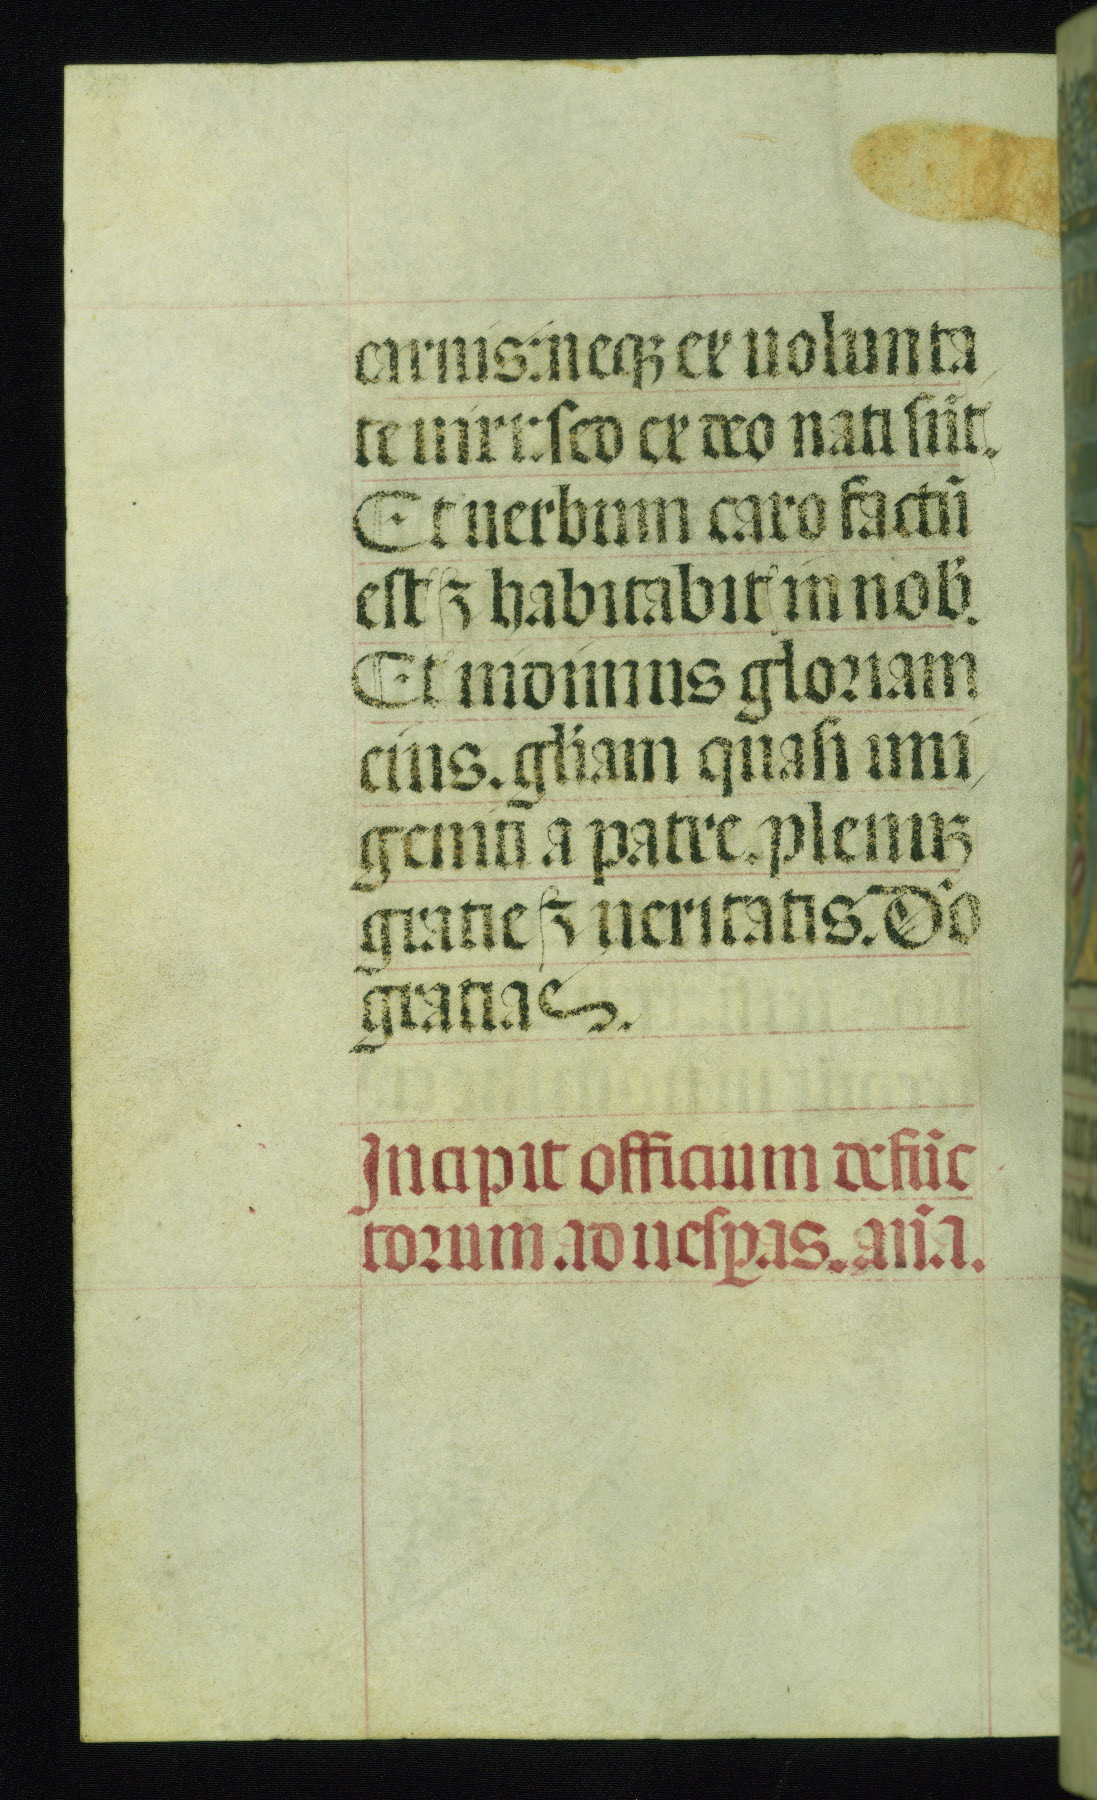 carnis: neqꝫ ex uolunta
te uiri: sed ex deo nati sūt.
Et uerbum caro factū
est ⁊ habitabit in nob̄.
Et uidimus gloriam
eius. gl̄iam quasi uni
geniti a patre. plenuꝫ
gratie ⁊ ueritatis. Dō
gratias.
Incipit officium defūc
torum ad uesꝑas. an̄a.